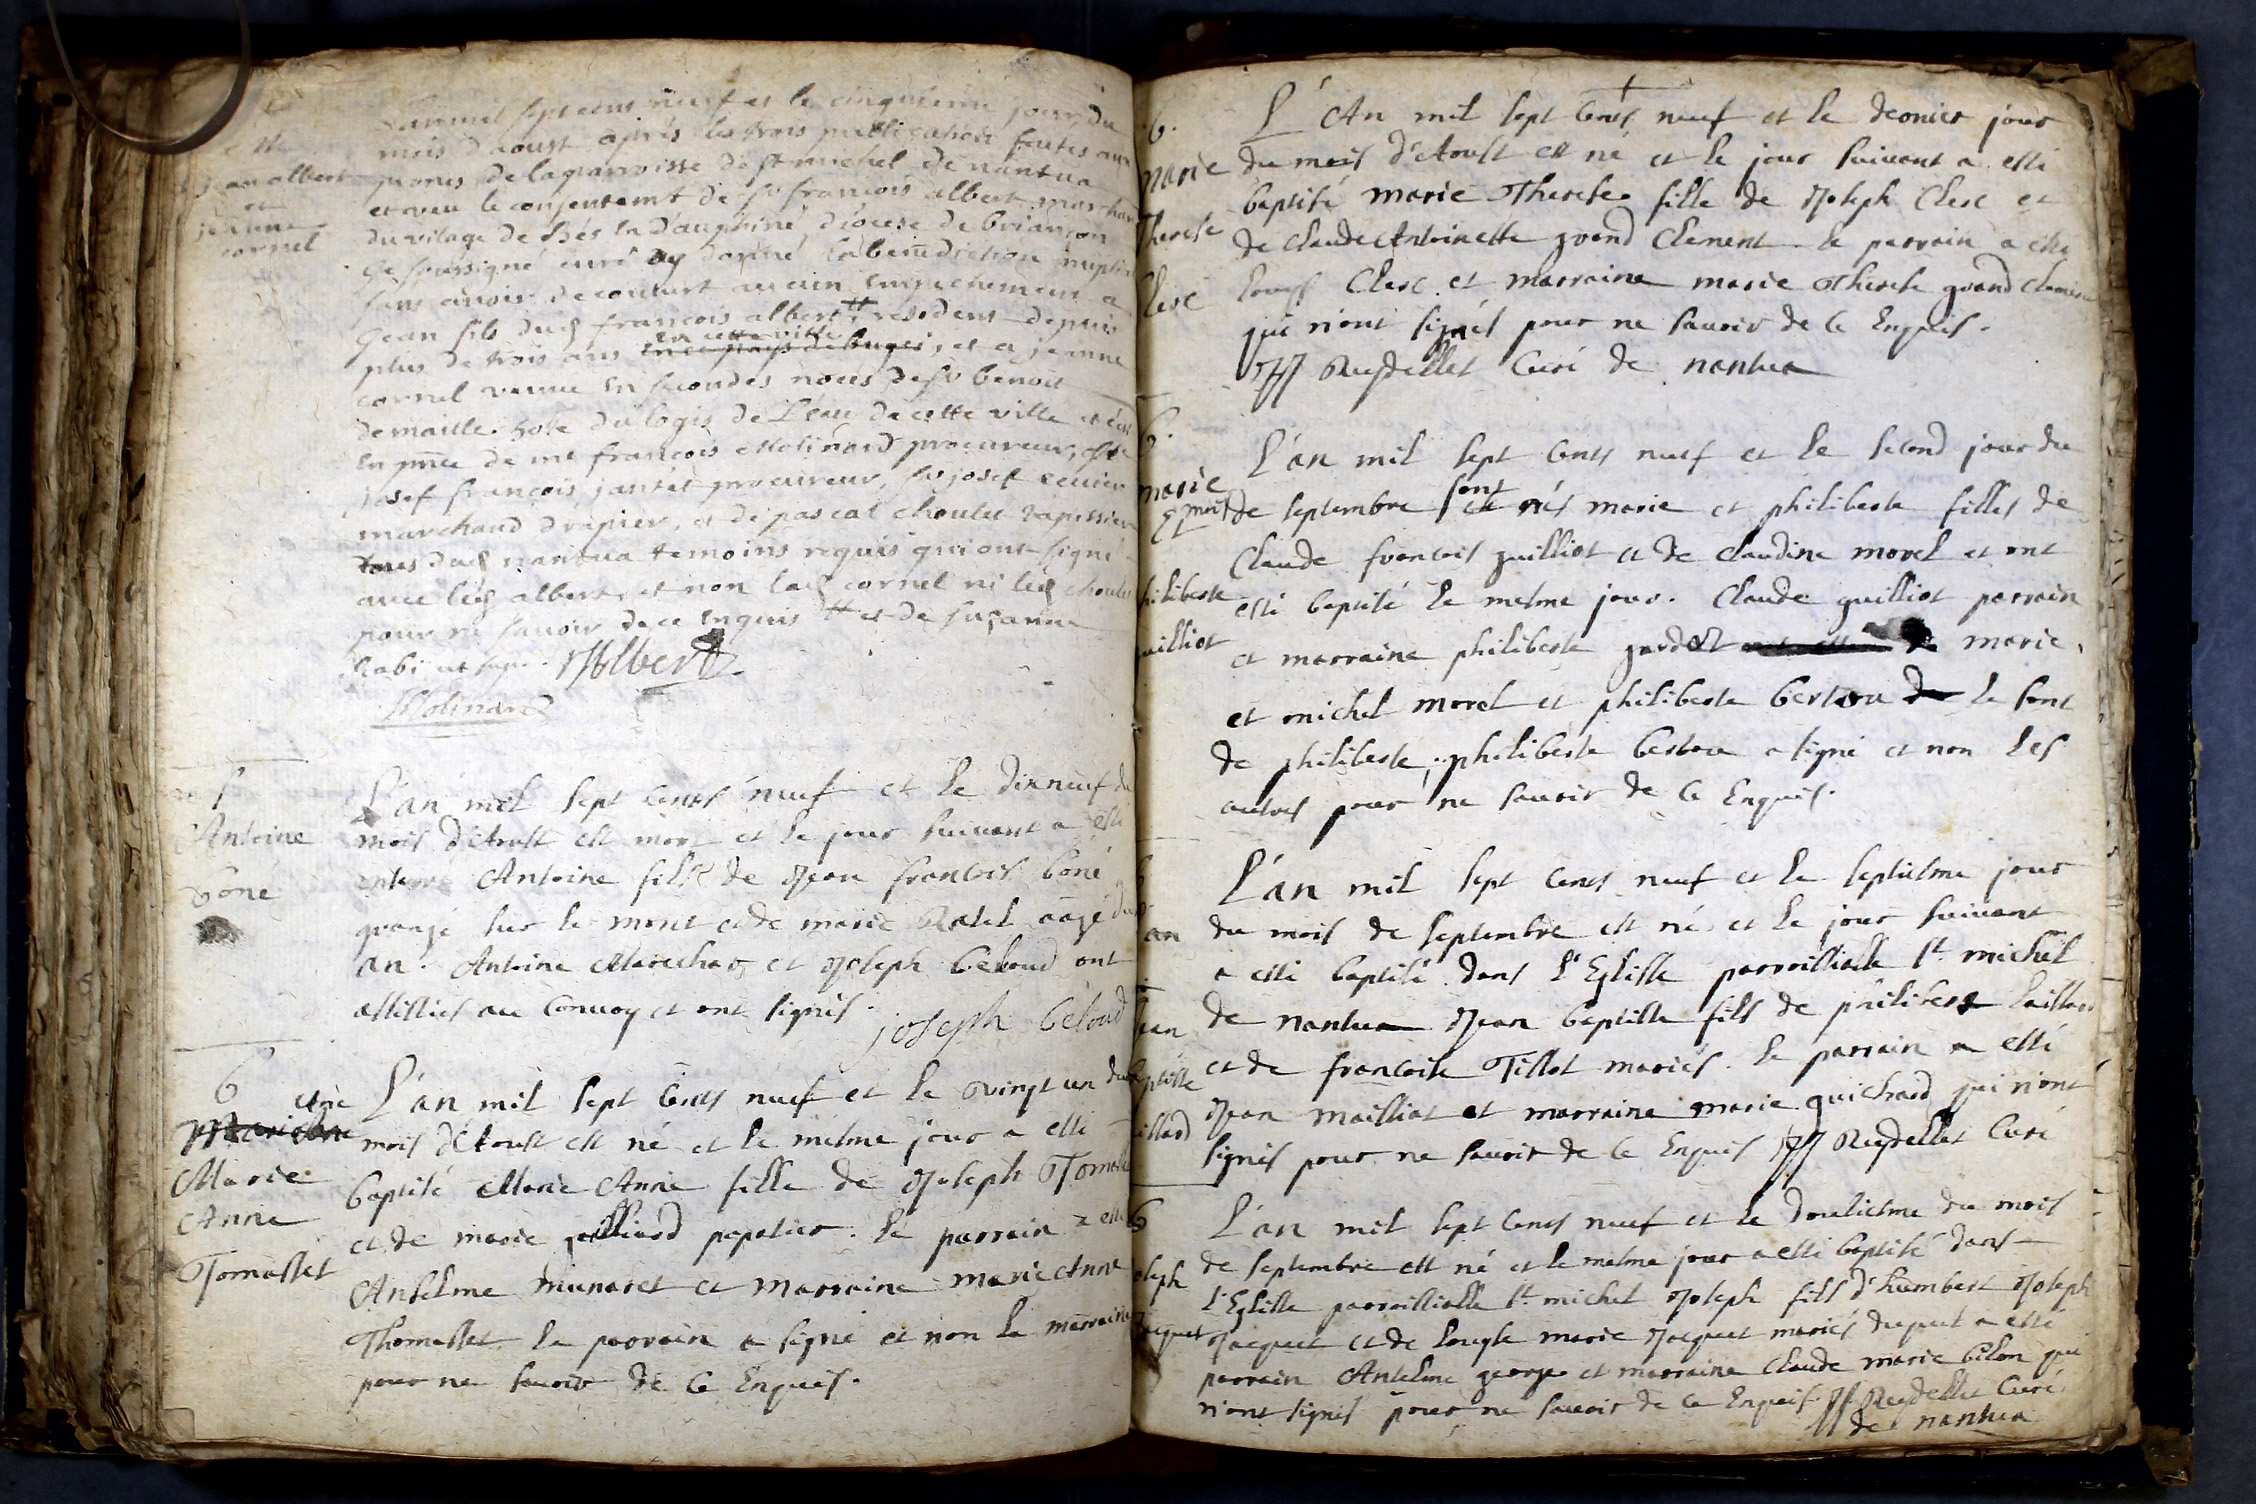 L'anmil sept cens neuf et le cinquieme jour du
mois d'aoust apres les trois publications faites aux
prones de la parroisse de st michel de nantua
jean albert
et veu le consentemt de sr francois albert marchan
et
du vilage de en dauphiné diocese de briançon
jeanne
cornel
je soussigné curé ay donné la benediction nuptia
sans avoir decouvert aucun empechement a
jean fils dud francois albert # resident depuis
en cette ville
plus de trois ans en ce pays de bugei, et a jeanne
cornel veuve en secondes noces de sr benoit
demaille hote du logis de l'ecu de cette ville
en pnce de me francois Molinard procureur,
josef francois jantet procureur, sr josef
marchand drapier, et de pascal choulet tapissier
tous dud nantua temoins requis qui ont signé
avec led albert, et non lad cornel ni led choulet
pour ne savoir de ce enquis # et de suzanne
Rabi
Albert
Molinard
Antoine
boné
L'an mil sept cents neuf et le dixneuf du
mois d'Aoust est mort et le jour suivant a esté
enterré Antoine fils de Jean francois boné
grangé sur le mont et de marie Ratel aagé d'un
an. Antoine Marechat et Joseph beloud ont
assistés au convoy et ont signés.
joseph beloud
6
Marie
Anne
Tomasset
L'an mil sept cents neuf et le vingt un du
mois d'Aoust est né et le mesme jour a esté
baptisé Marie Anne fille de Joseph Tomasset
et de marie papetier. le parrain a esté
Anselme munaret et marraine marie Anne
Thomasset. le parrain a signé et non la marraine
pour ne savoir de ce Enquis.
6.
marie
Therese
Clerc
L'An mil sept cents neuf et le dernier jour
du mois d'Aoust est né et le jour suivant a esté
baptisé marie Therese fille de Joseph Clerc et
de Claude Antoinette grand Clement. le parrain a esté
Louys Clerc et marraine marie Therese grand Clement
qui n'ont signés pour ne savoir de ce Enquis.
Ruydellet Curé de nantua
6.
marie
et
philiberte
guilliot
L'an mil sept cents neuf et le second jour du
mois de septembre sont nés marie et philiberte filles de
Claude francois guilliot et de Claudine morel et ont
esté baptisé le mesme jour. Claude guilliot parrain
et marraine philiberte marie,
et michel morel et philiberte le sont
de philiberte; philiberte a signé et non les
autres pour ne savoir de ce Enquis.
6
Jean
baptiste
L'an mil sept cents neuf et le septiesme jour
du mois de septembre est né et le jour suivant
a esté baptisé dans l'Eglisse parroissialle st michel
de nantua Jean baptiste fils de philibert
et de francoise Tillot mariés. le parrain a esté
Jean mailliat et marraine marie guichard qui n'ont
signés pour ne savoir de ce Enquis Ruydellet Curé
6
Joseph
Jacquet
L'an mil sept cents neuf et le douziesme du mois
de septembre est né et le mesme jour a esté baptisé dans
l'Eglisse parroissialle st michel Joseph fils d'humbert Joseph
Jacquet et de Louyse marie Jacquet mariés duquel a esté
parrain Anselme george et marraine Claude marie bilon qui
n'ont signés pour ne savoir de ce Enquis. Ruydellet Curé
de nantua